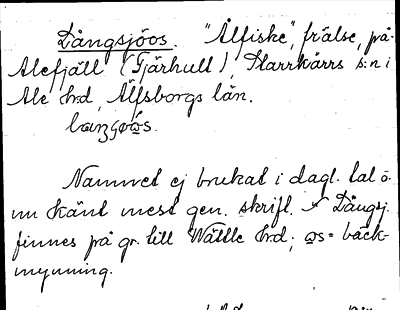 Långsjöos. "Ålfiske", frälse, på
Alefjäll (Tjärhult), Starrkärrs s:n i
Ale hrd, Älfsborgs län.
Namnet ej brukat i dagl. tal o.
nu känt mest gen. skrifl. Långsj.
finnes på gr. till Wättle hrd; os = bäck-
mynning.